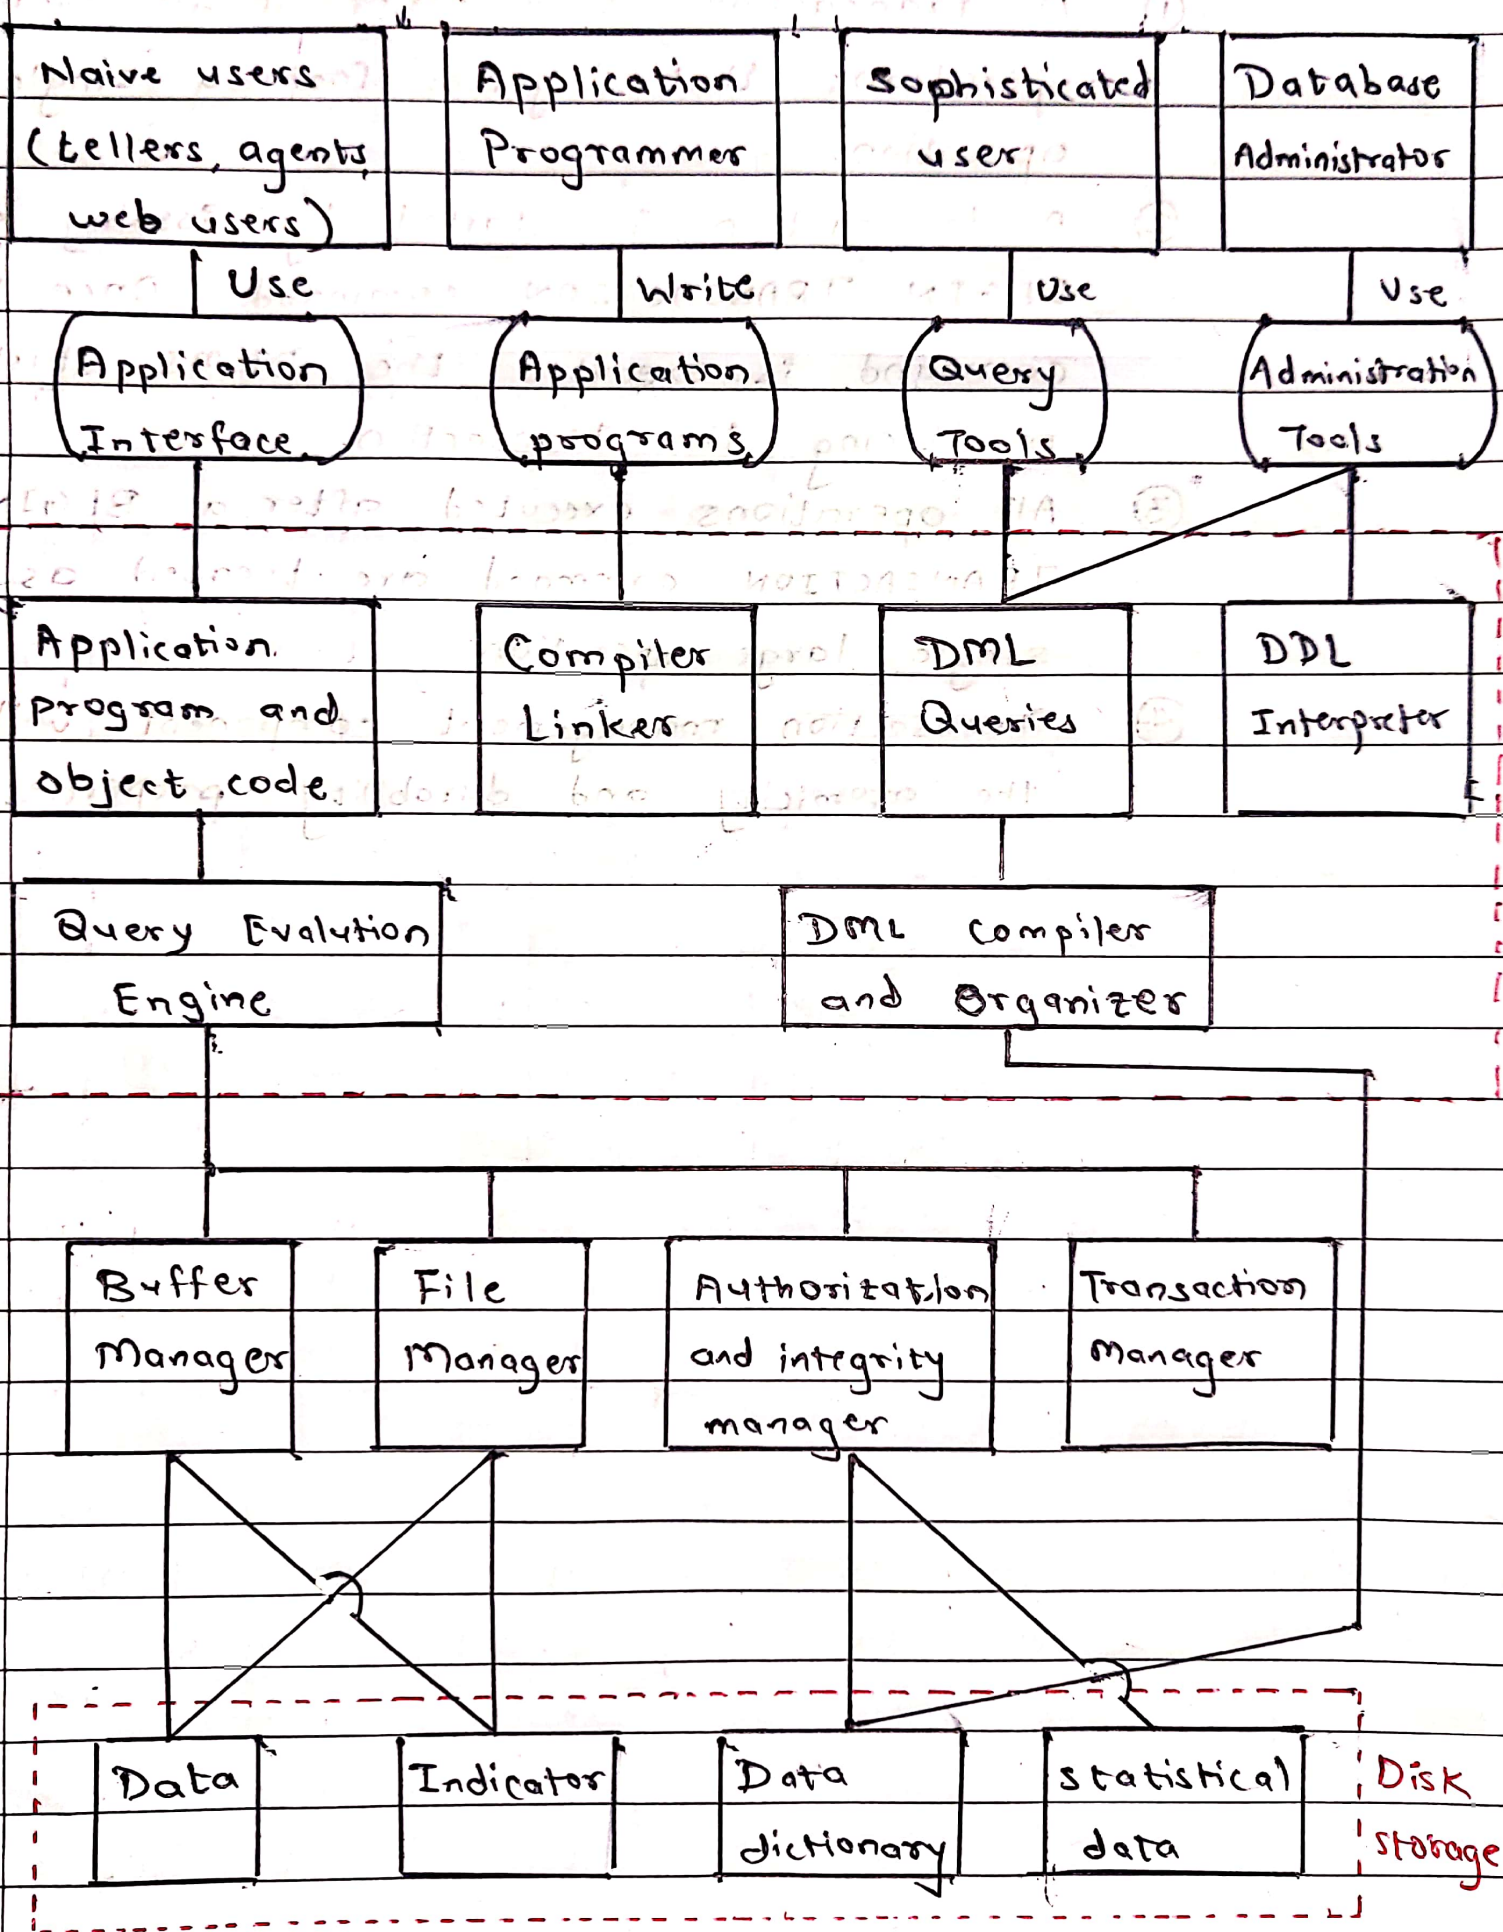 Naive users
(tellers, agents,
web users)
Application
Programmer
sophisticated
user
Database
Administrator
Use
Write
Use
Use
Application
Interface
Application
programs
Query
Tools
Administration
Tools
Application
program and
object code
Compiler
Linker
DML
Queries
DDL
Interpreter
Query Evalution
Engine
DML Compiler
and Organizer
Buffer
Manager
File
Manager
Authorization
and integrity
manager
Transaction
manager
Data
Indicator
Data
dictionary
statistical
data
Disk
storage